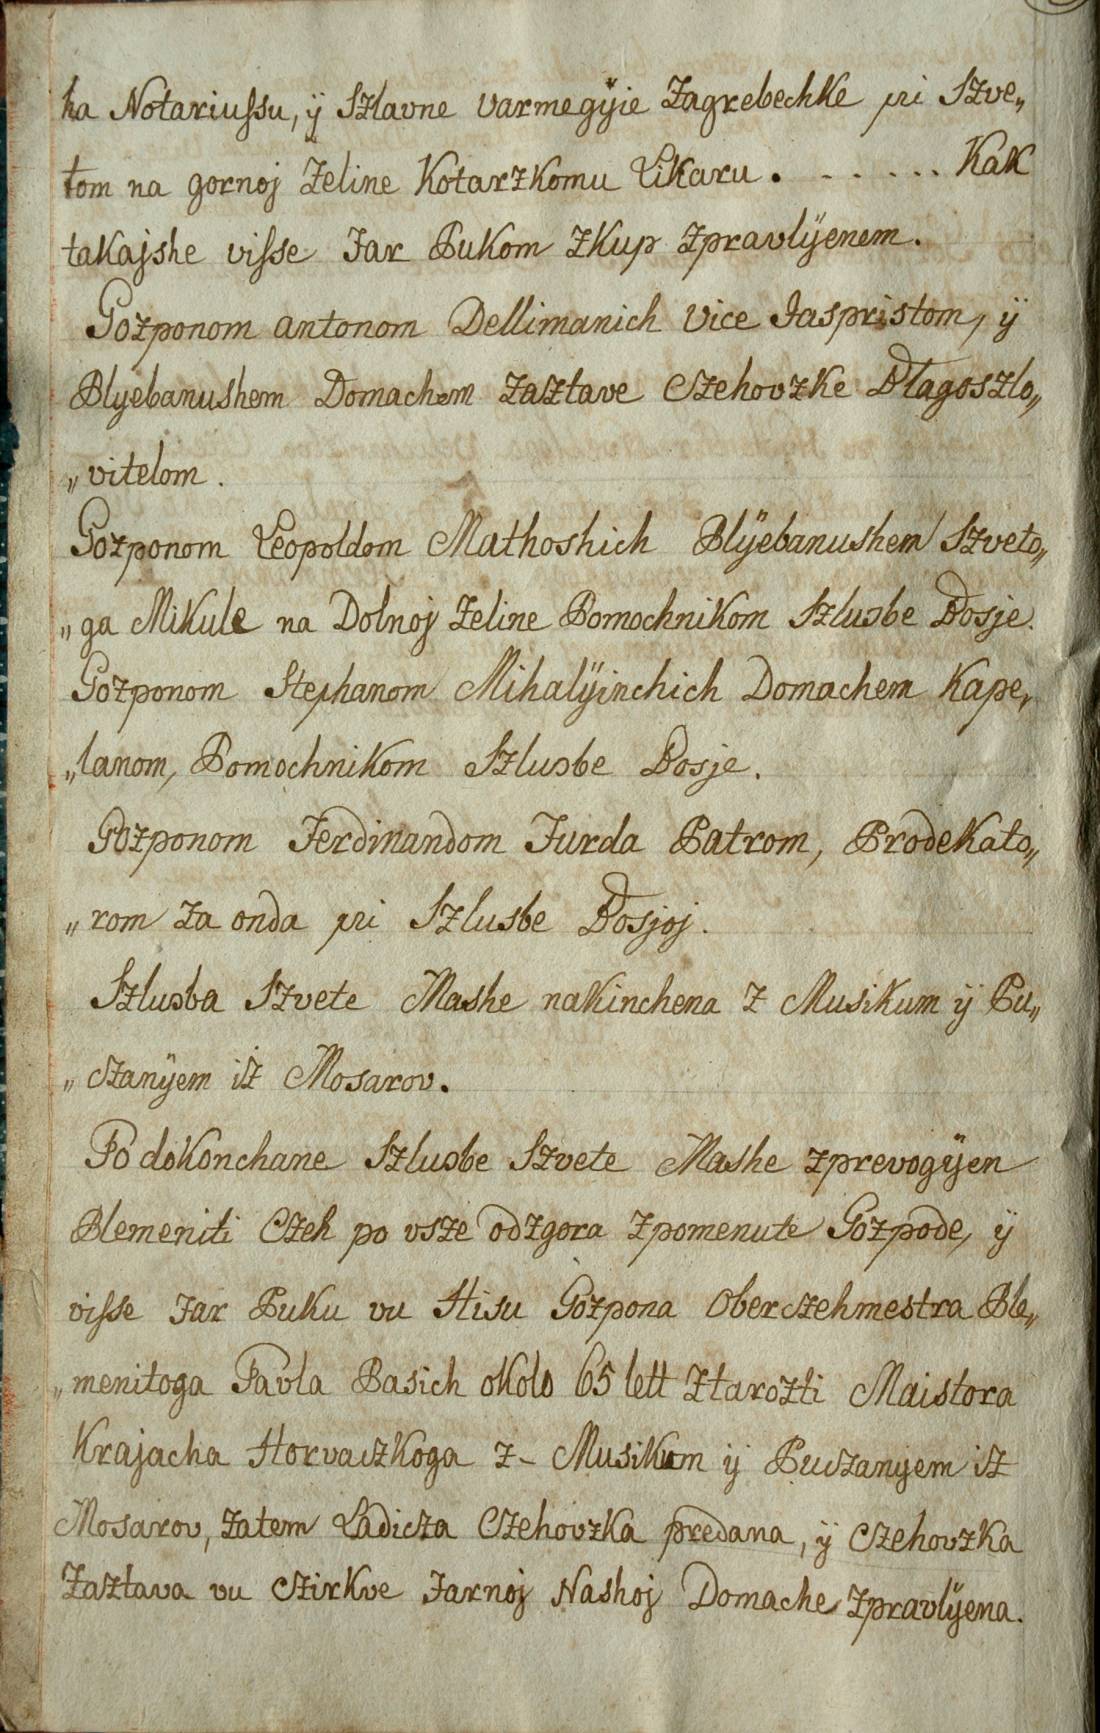 ka Notariuſsu, ÿ Szlavne varmegÿie Zagrebechke pri Szve„
tom na gornoj Zeline Kotarzkomu Likaru . . . . . . . Kak
takajshe viſse Far Pukom zkup zpravlÿenem.
Gozponom antonom Dellimanich Vice Jaspristom, ÿ
Plÿebanushem Domachem Zaztave Czehovzke Blagoszlo„
„vitelom.
Gozponom Leopoldom Mathoshich Plÿebanushem Szveto„
„ga Mikule na Dolnoj Zeline Pomochnikom Szlusbe Bosje.
Gozponom Stephanom Mihalÿinchich Domachem Kape„
„lanom, Pomochnikom Szlusbe Bosje.
Gozponom Ferdinandom Furda Patrom, Prodekato„
„rom za onda pri Szlusbe Bosjoj.
Szlusba Szvete Mashe nakinchena z Musikum ÿ Pu„
„czanÿem iz Mosarov.
Po dokonchane Szlusbe Szvete Mashe zprevogÿen
Plemeniti Czeh po vsze odzgora zpomenute Gozpode, ÿ
viſse Far Puku vu Hisu Gozpona Oberczehmestra Ple„
„menitoga Pavla Basich okolo 65 lett ztarozti Maistora
Krajacha Horvaczkoga z- Musikum ÿ Puczanyem iz
Mosarov, zatem Ladicza Czehovzka predana, ÿ Czehovzka
Zaztava vu Czirkve Farnoj Nashoj Domache zpravlÿena.